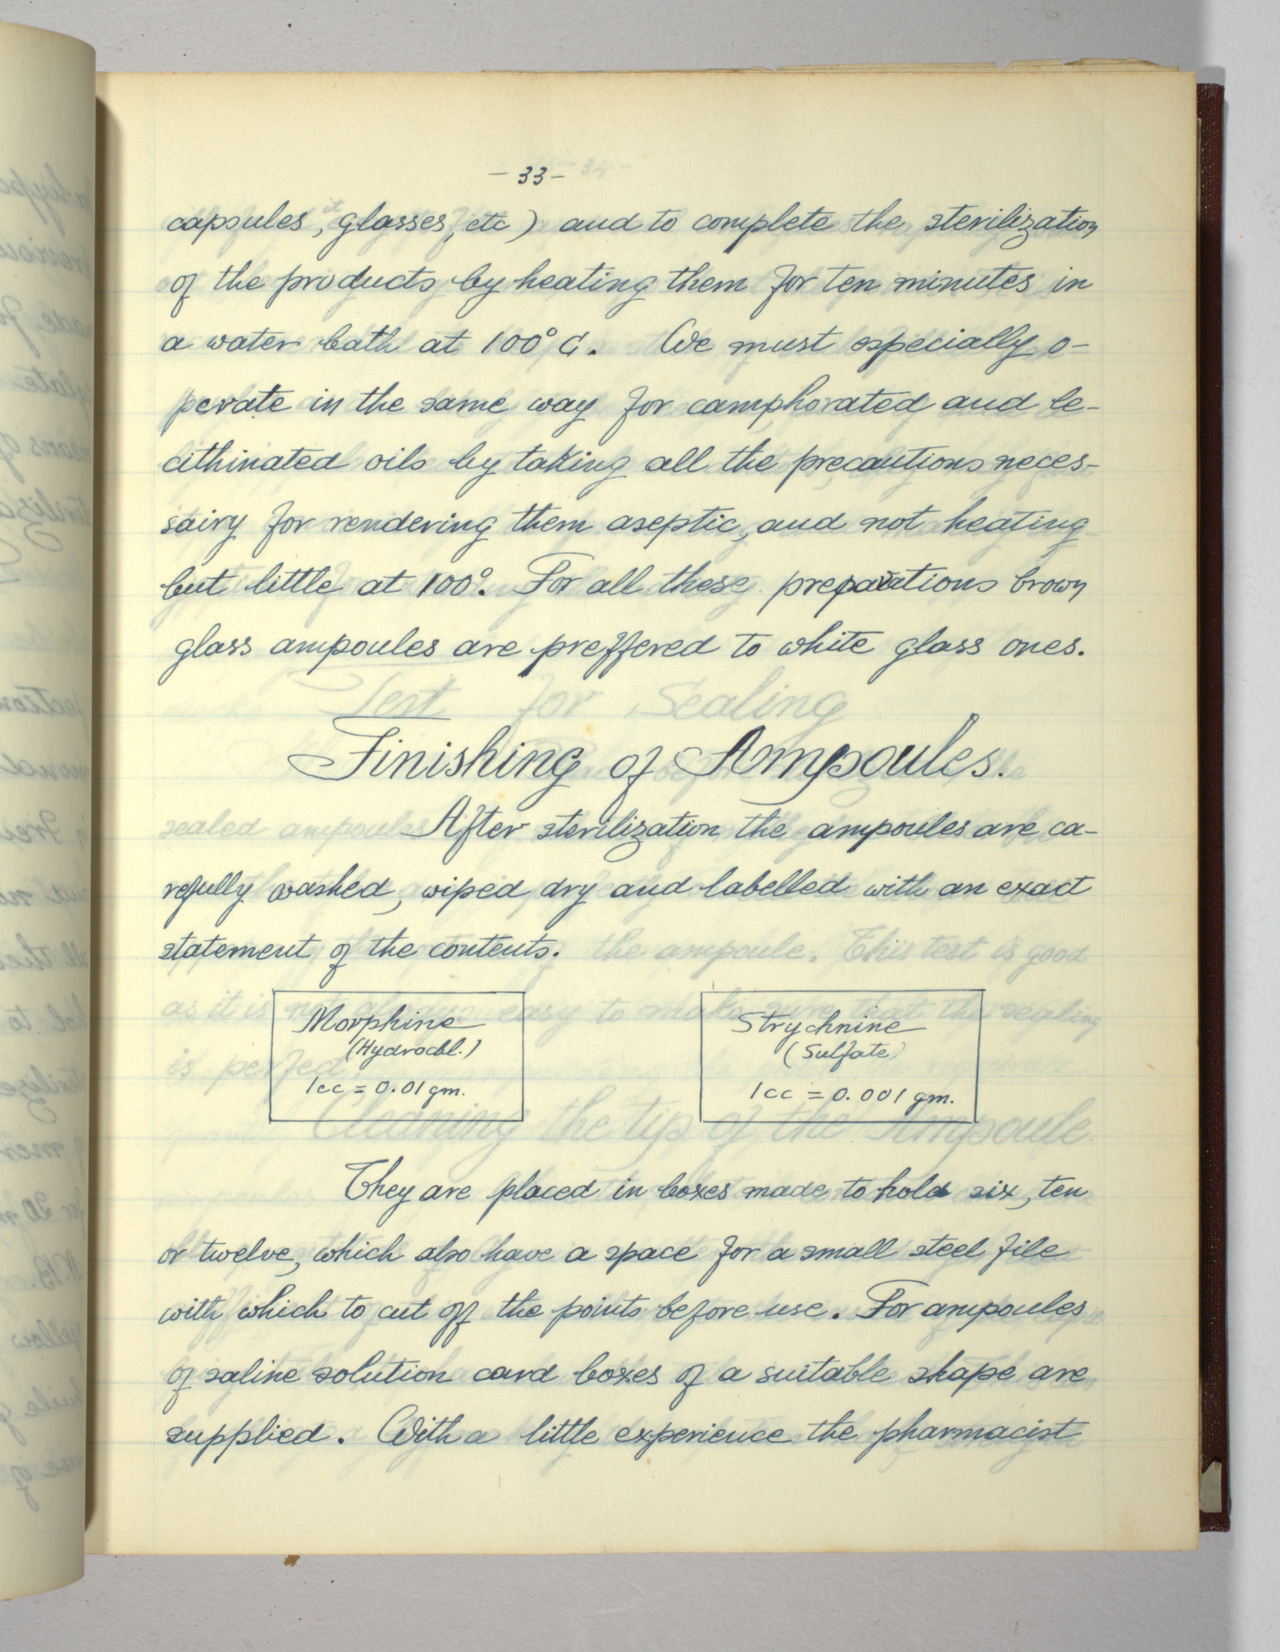 - 33 -
capsules, glasses, etc) and to complete the sterilization
of the products by heating them for ten minutes in
a water bath at 100° C. We must especially o-
perate in the same way for camphorated and le-
cithinated oils by taking all the precautions neces-
sairy for rendering them aseptic, and not heating
but little at 100°. For all these preparations brown
glass ampoules are preffered to white glass ones.
Test for Sealing
Finishing of Ampoules.
sealed ampoules
After sterilization the ampoules are ca-
refully washed, wiped dry and labelled with an exact
statement of the contents.
the ampoule. This test is good
as it is not always easy to make sure that the sealing
is perfect
Morphine
(Hydrochl.)
1cc = 0.01 gm.
Strychnine
(Sulfate)
1cc = 0.001 gm.
Cleaning the tip of the Ampoule
They are placed in boxes made to hold six, ten
or twelve, which also have a space for a small steel file
with which to cut off the points before use. For ampoules
of saline solution card boxes of a suitable shape are
supplied. With a little experience the pharmacist